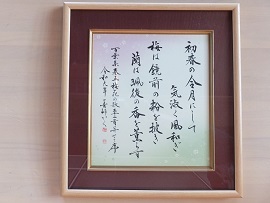 初春の令月にして
気淑く風和ぎ
梅は鏡前の粉を披き
蘭は珮後の香を薫らす
万葉集巻五梅花の歌三十二首序
令和元年